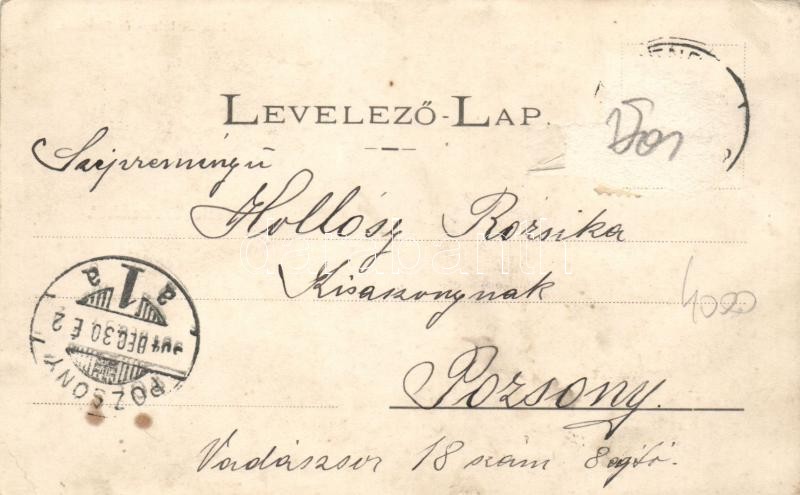 LEVELEZŐ-LAP.
Szépreményű
Hollósy Rozsika
Kisaszonynak
Pozsony.
Vadászsor 18 szám 8 ajtó.
POZSONY
904 DEC 30. É 2
1
a a
4020